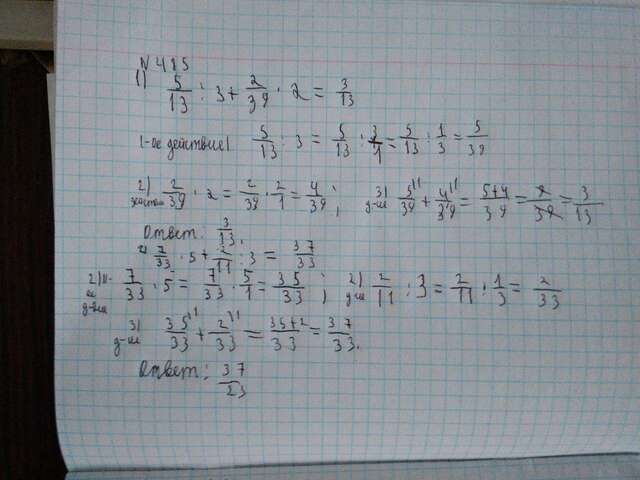 N 415
1) 5/13 : 3 + 2/39 · 2 = 3/13
1-ое действие) 5/13 : 3 = 5/13 : 3/1 = 5/13 · 1/3 = 5/39
2) 2/39 · 2 = 2/39 · 2/1 = 4/39 ; 3) д-ие 5/39 + 4/39 = 5+4/39 = 9/39 = 3/13
Ответ: 3/13.
2) 7/33 · 5 + 2/11 : 3 = 37/33
7/33 · 5 = 7/33 · 5/1 = 35/33 ; 2) д-ие 2/11 : 3 = 2/11 · 1/3 = 2/33
3) д-ие 35/33 + 2/33 = 35+2/33 = 37/33.
Ответ: 37/23